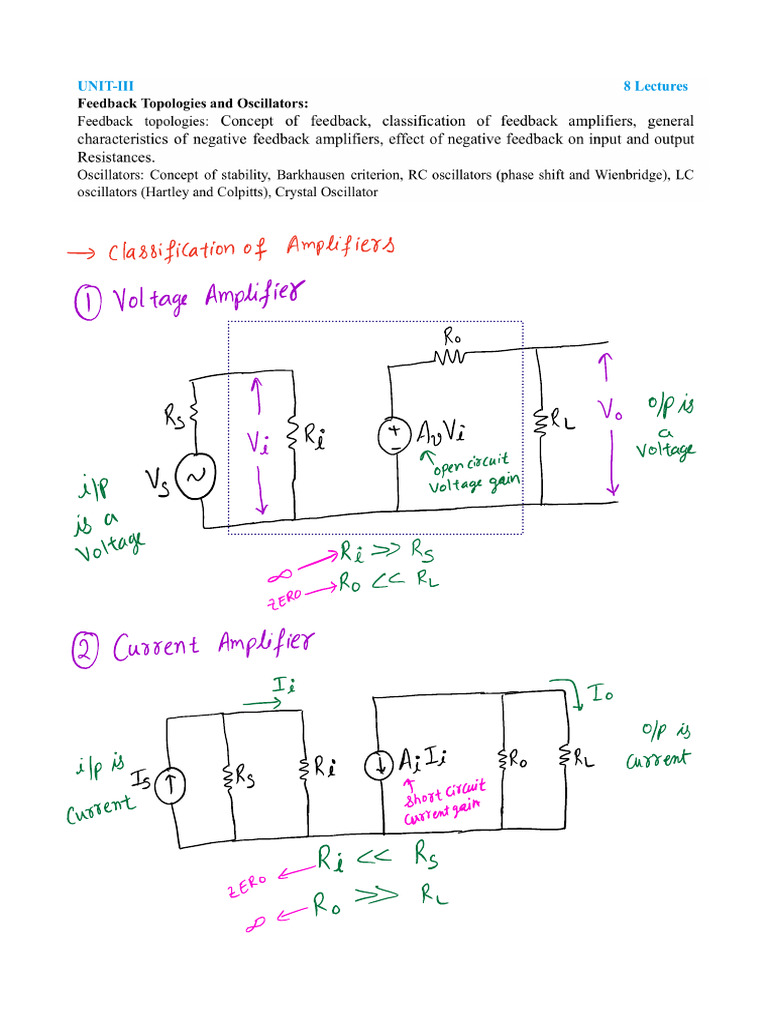 UNIT-III 8 Lectures
Feedback Topologies and Oscillators:
Feedback topologies: Concept of feedback, classification of feedback amplifiers, general
characteristics of negative feedback amplifiers, effect of negative feedback on input and output
Resistances.
Oscillators: Concept of stability, Barkhausen criterion, RC oscillators (phase shift and Wienbridge), LC
oscillators (Hartley and Colpitts), Crystal Oscillator
→ Classification of Amplifiers
① Voltage Amplifier
Ro
Rs
Vi
Ri
+
-
AvVi
RL
Vo
o/p is
a
Voltage
open circuit
Voltage gain
Vs
i/p
is a
Voltage
∞ → Ri >> Rs
ZERO → Ro << RL
② Current Amplifier
Ii
Io
i/p is
Current
Is
Rs
Ri
AiIi
Ro
RL
o/p is
Current
short circuit
Current gain
ZERO ← Ri << Rs
∞ ← Ro >> RL